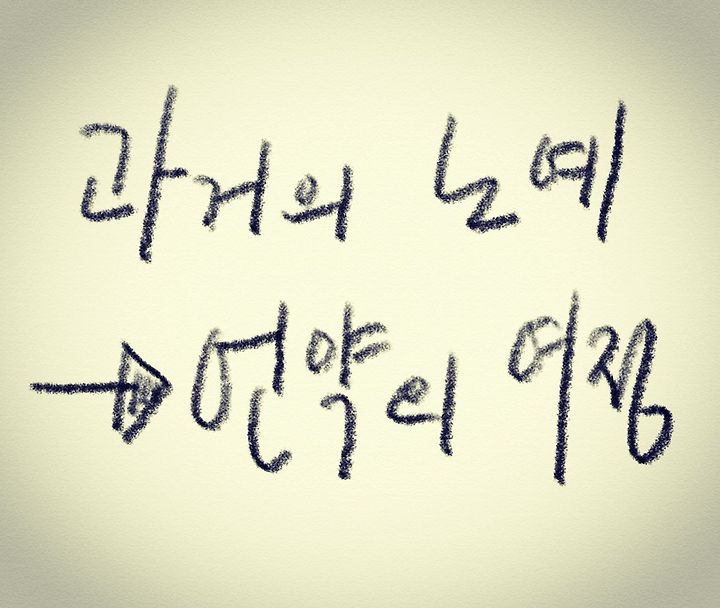 과거의 노예
→ 언약의 여정